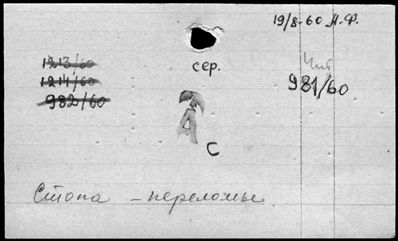 19/8-60 М.Ф.
1213/60
1214/60
982/60
сер.
981/60
А
С
Стопа – переломы